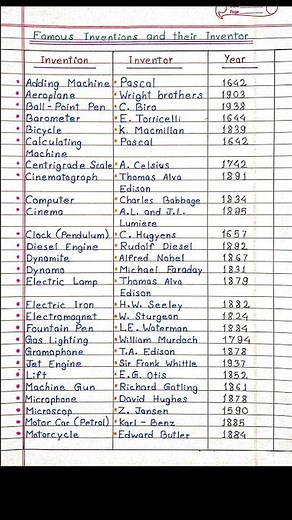 Famous Inventions and their Inventor
Invention Inventor Year
Adding Machine Pascal 1642
Aeroplane Wright brothers 1903
Ball-Point Pen C. Biro 1938
Barometer E. Torricelli 1644
Bicycle K. Macmillan 1839
Calculating Pascal 1642
Machine
Centrigrade Scale A. Celsius 1742
Cinematograph Thomas Alva 1891
Edison
Computer Charles Babbage 1834
Cinema A.L. and J.L. 1895
Lumiere
Clock (Pendulum) C. Hugyens 1657
Diesel Engine Rudolf Diesel 1892
Dynamite Alfred Nobel 1867
Dynamo Michael Faraday 1831
Electric Lamp Thomas Alva 1879
Edison
Electric Iron H.W. Seeley 1882
Electromagnet W. Sturgeon 1824
Fountain Pen L.E. Waterman 1884
Gas Lighting William Murdoch 1794
Gramophone T.A. Edison 1878
Jet Engine Sir Frank Whittle 1937
Lift E.G. Otis 1852
Machine Gun Richard Gatling 1861
Microphone David Hughes 1878
Microscop Z. Jansen 1590
Motor Car (Petrol) Karl-Benz 1885
Motorcycle Edward Butler 1884